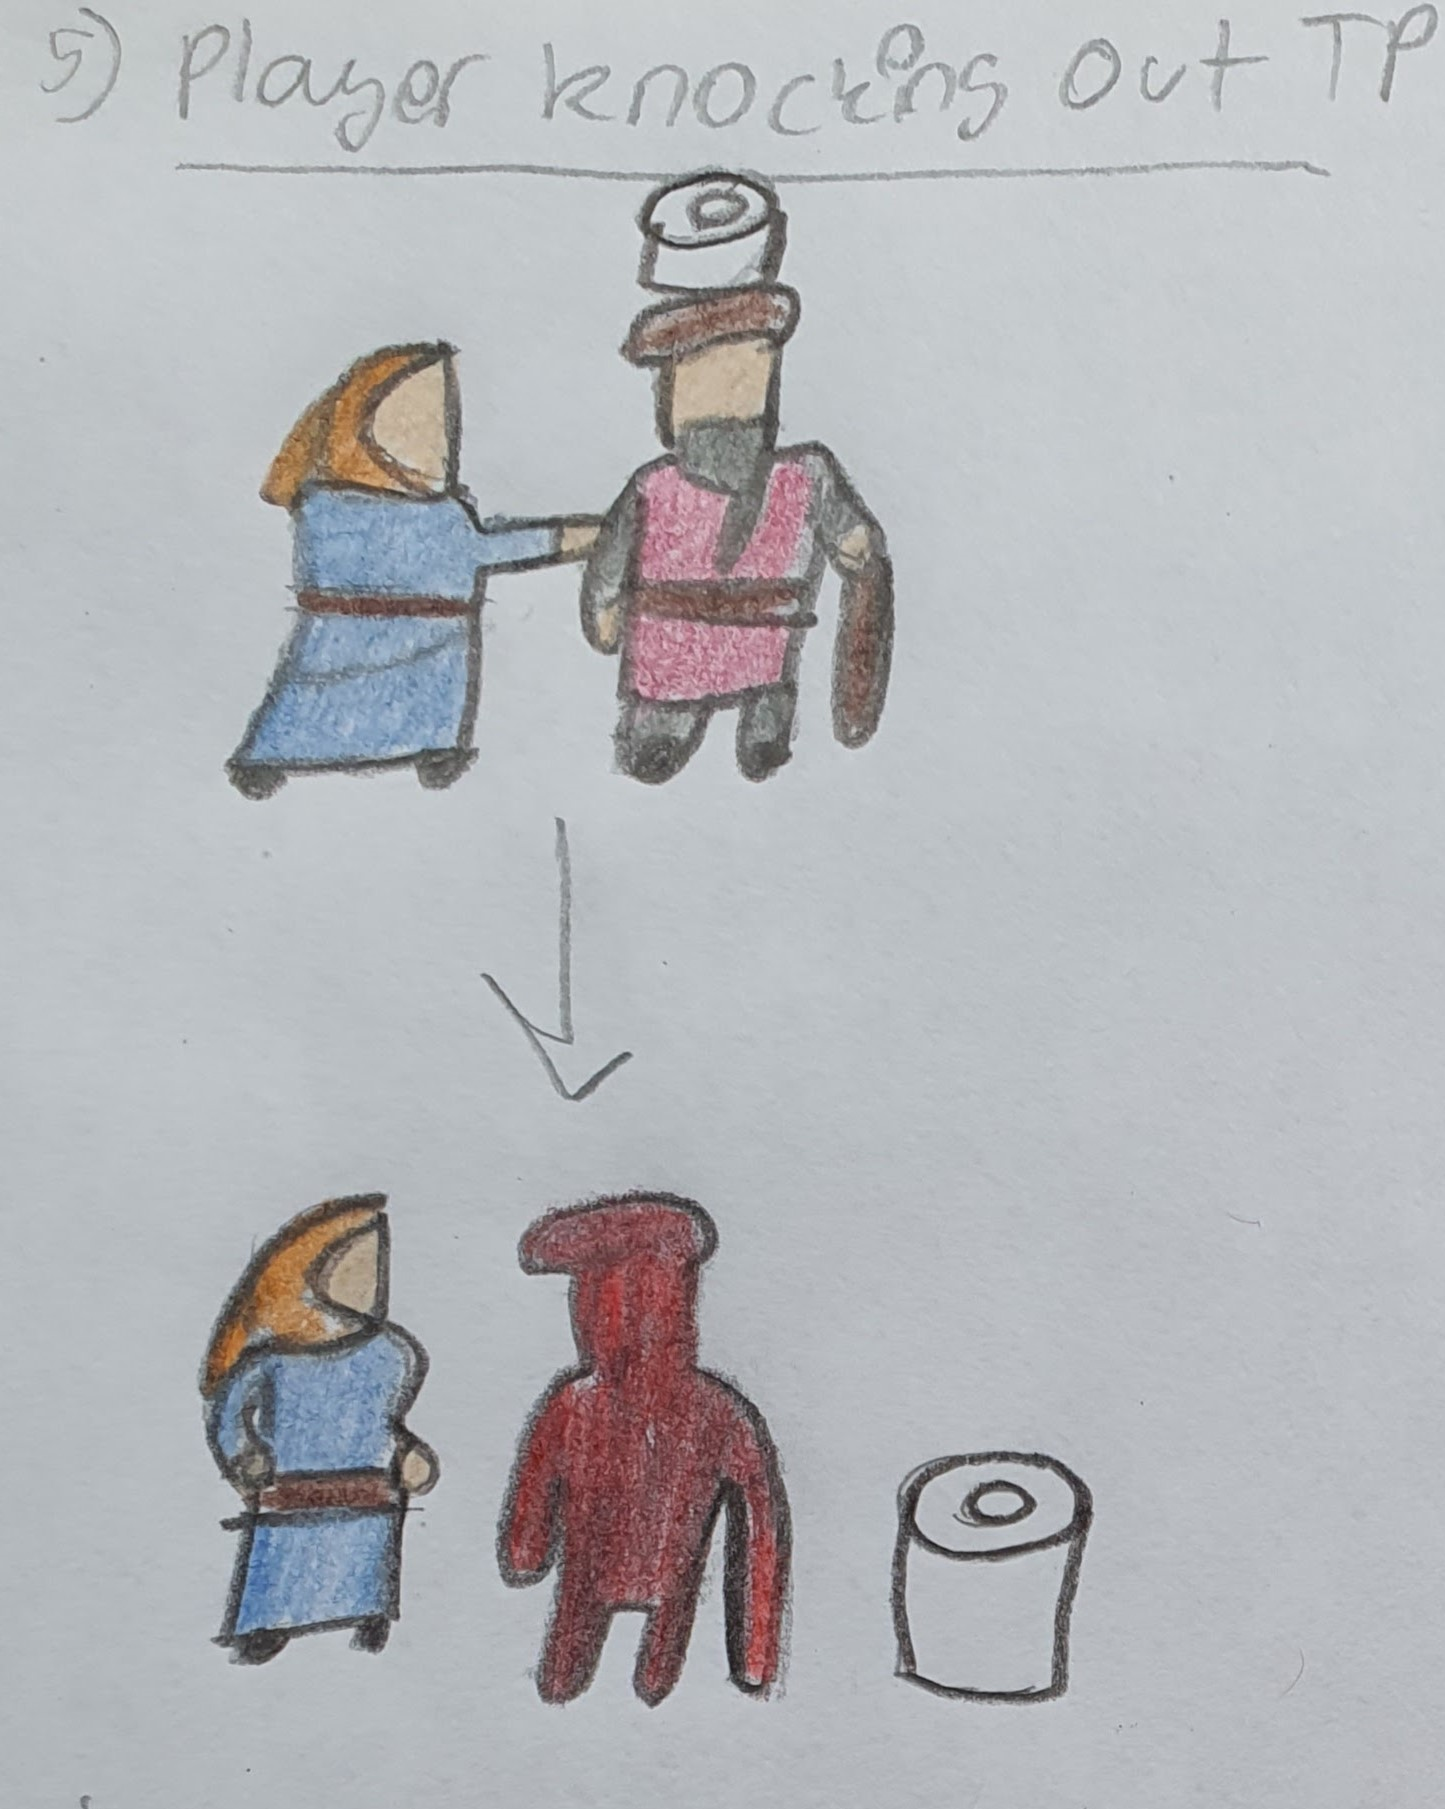 5) Player knocking out TP